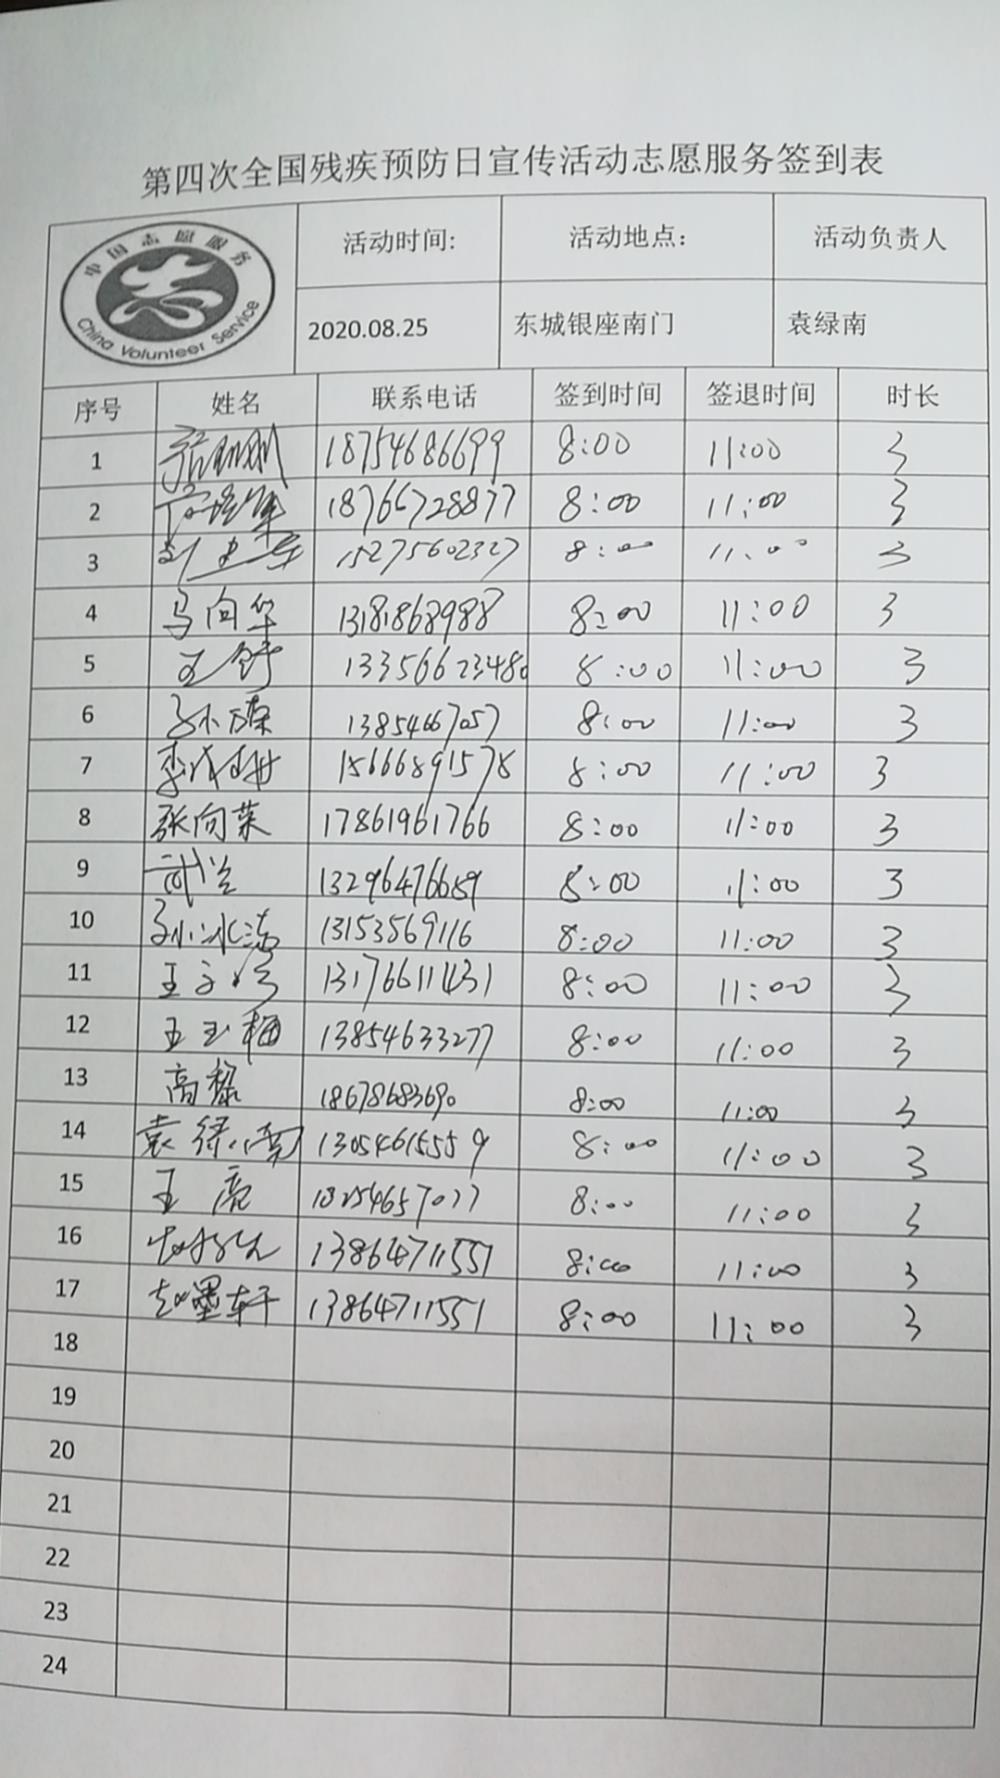 第四次全国残疾预防日宣传活动志愿服务签到表
中国志愿服务
China Volunteer Service
活动时间: 活动地点: 活动负责人
2020.08.25 东城银座南门 袁绿南
序号 姓名 联系电话 签到时间 签退时间 时长
1 18754686699 8:00 11:00 3
2 18766728877 8:00 11:00 3
3 15275602327 8:00 11:00 3
4 马向华 13181868988 8:00 11:00 3
5 王舒 13356623480 8:00 11:00 3
6 13854667057 8:00 11:00 3
7 15666891578 8:00 11:00 3
8 张向荣 17861961766 8:00 11:00 3
9 8:00 11:00 3
10 孙冰洁 13153569116 8:00 11:00 3
11 王 13176611431 8:00 11:00 3
12 王玉梅 13854633277 8:00 11:00 3
13 高黎 18678683690 8:00 11:00 3
14 袁绿南 13054615559 8:00 11:00 3
15 王亮 8:00 11:00 3
16 13864711551 8:00 11:00 3
17 赵墨轩 13864711551 8:00 11:00 3
18
19
20
21
22
23
24